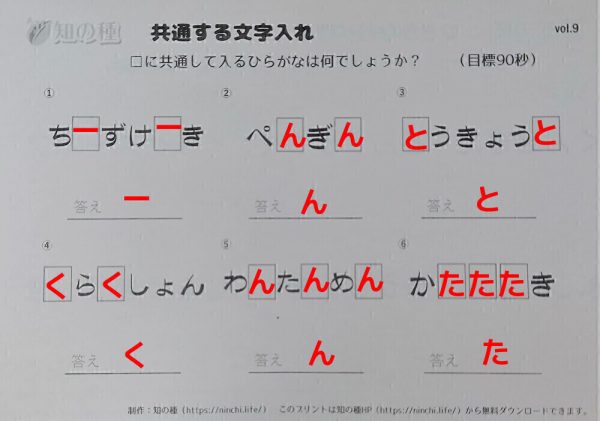 知の種 共通する文字入れ vol.9
□に共通して入るひらがなは何でしょうか？ （目標90秒）
① ② ③
ちーずけーき ぺんぎん とうきょうと
答え ー 答え ん 答え と
④ ⑤ ⑥
くらくしょん わんたんめん かたたたき
答え く 答え ん 答え た
制作：知の種（https://ninchi.life/） このプリントは知の種HP（https://ninchi.life/）から無料ダウンロードできます。